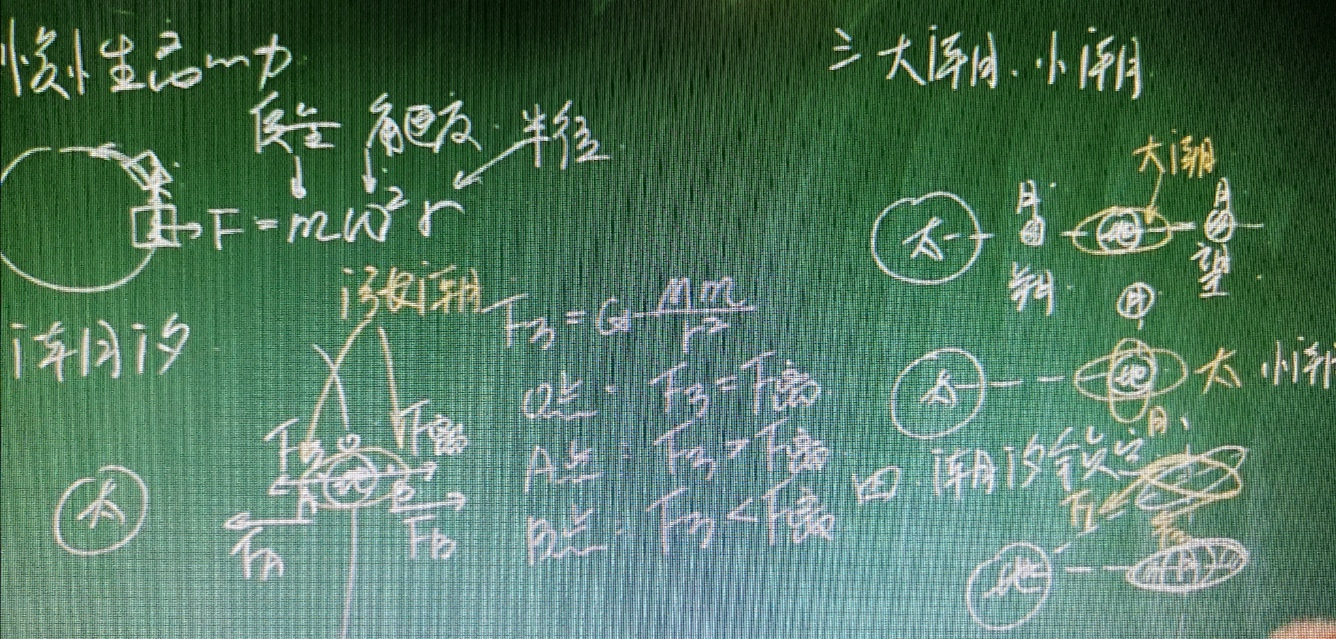 惯性离心力
质量 角速度 半径
F=mω²r
潮汐
涨潮
F引=G Mm/r²
O点: F引=F离
A点: F引>F离
B点: F引<F离
F引 O F离
太 A 地 B
FA FB
三 大潮、小潮
大潮
太 月 地 月
朔 望
月
太 地 太 小潮
月
四、潮汐锁定
F1 F2
地 月